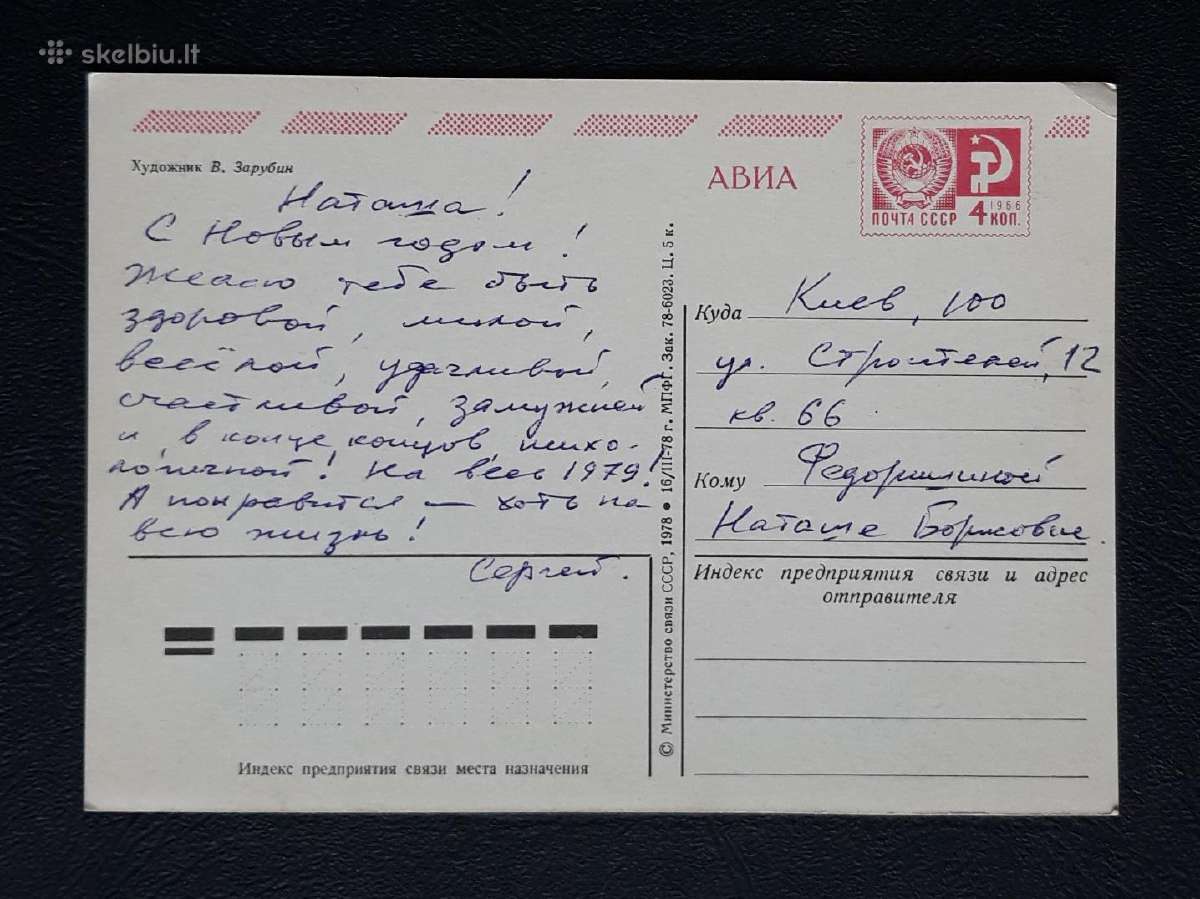 skelbiu.lt
Художник В. Зарубин
АВИА
1966
ПОЧТА СССР 4 КОП.
Наташа!
С Новым годом!
Желаю тебе быть
здоровой, милой,
весёлой, удачливой,
счастливой, замужней
и, в конце концов, психо-
логичной! На весь 1979!
А понравится — хоть на
всю жизнь!
Сергей.
Индекс предприятия связи места назначения
© Министерство связи СССР, 1978 ● 16/III-78 г. МПФГ. Зак. 78-6023. Ц. 5 к.
Куда Киев, 100
ул. Строителей, 12
кв. 66
Кому
Наташе Борисовне.
Индекс предприятия связи и адрес
отправителя